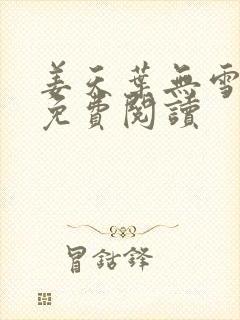 姜天葉無雪
免費閱讀
冒鈷鋒